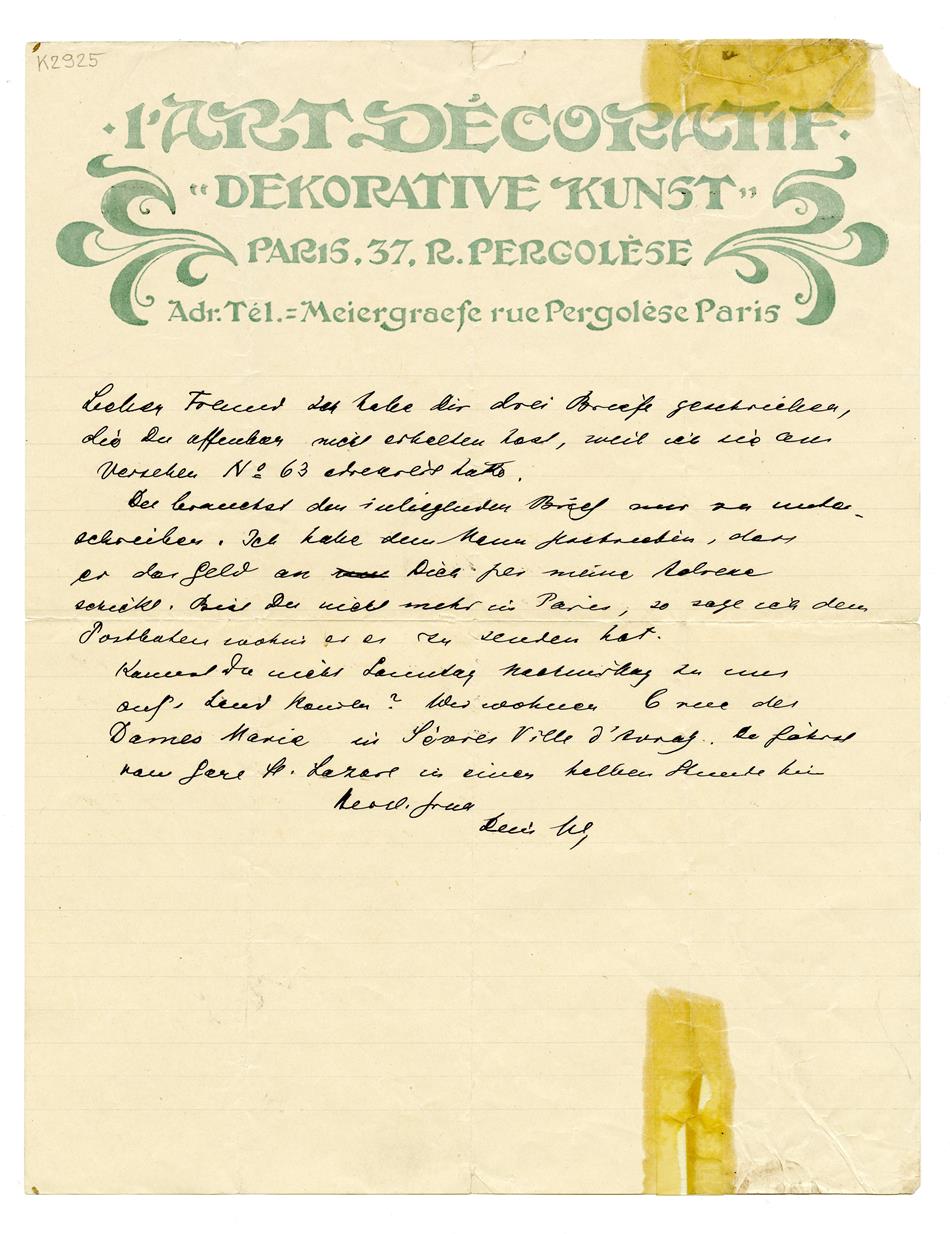 K2925
·l'ART DÉCORATIF·
"DEKORATIVE KUNST"
PARIS, 37, R. PERGOLÈSE
Adr. Tél.=Meiergraefe rue Pergolèse Paris
Lieber Freund Ich habe dir drei Briefe geschrieben,
die Du offenbar nicht erhalten hast, weil ich sie aus
Versehen Nº 63 adressirt hatte.
Du brauchst den inliegenden Brief nur zu unter-
schreiben. Ich habe dem Mann geschrieben, dass
er das Geld an Dich per meine Adresse
schickt. Bist Du nicht mehr in Paris, so sage ich dem
Postboten wohin er es zu senden hat.
Kannst Du nicht Sonntag Nachmittag zu uns
auf's Land kommen? Wir wohnen 6 rue des
Dames Marie in Sèvres Ville d'Avray. Du fährst
von Gare St. Lazare in einer halben Stunde hin
Dein